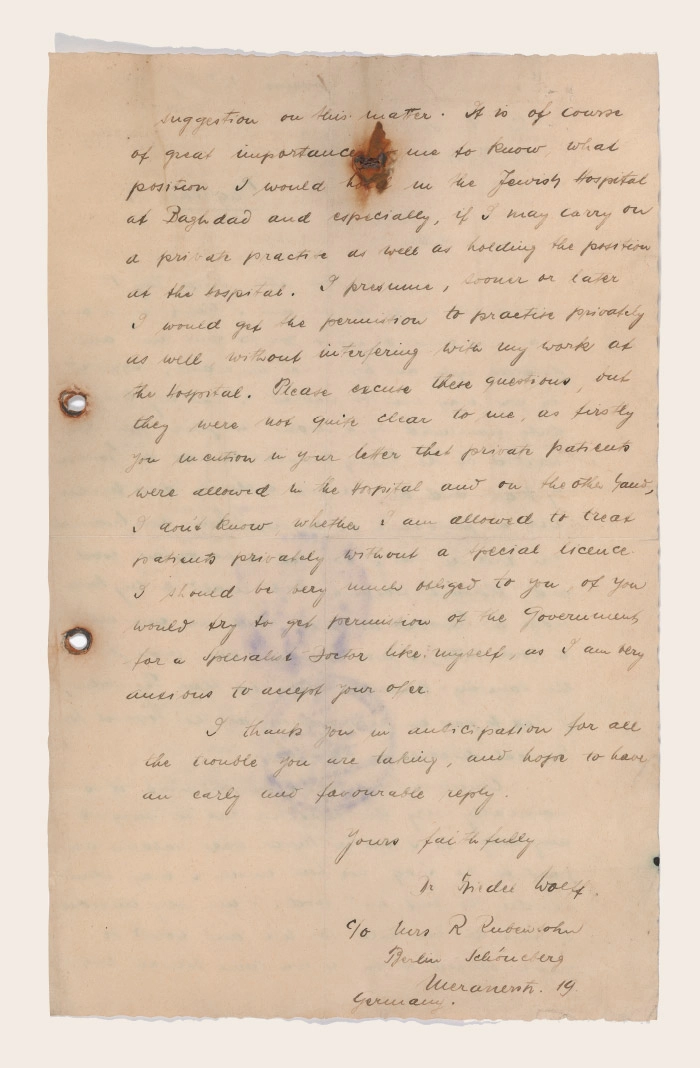 suggestion on this matter. It is of course
of great importance me to know what
position I would have in the Jewish Hospital
at Baghdad and especially, if I may carry on
a private practise as well as holding the position
at the Hospital. I presume, sooner or later
I would get the permission to practise privately
as well without interfering with my work at
the Hospital. Please excuse these questions, but
they were not quite clear to me, as firstly
you mention in your letter that private patients
were allowed in the Hospital and on the other hand,
I don't know whether I am allowed to treat
patients privately without a special licence.
I should be very much obliged to you, if you
would try to get permission of the Government
for a Specialist Doctor like myself, as I am very
anxious to accept your offer.
I thank you in anticipation for all
the trouble you are taking, and hope to have
an early and favourable reply.
Yours faithfully
Dr Wolff.
c/o Mrs R Rubensohn
Berlin Schöneberg
Meranerstr. 19
Germany.